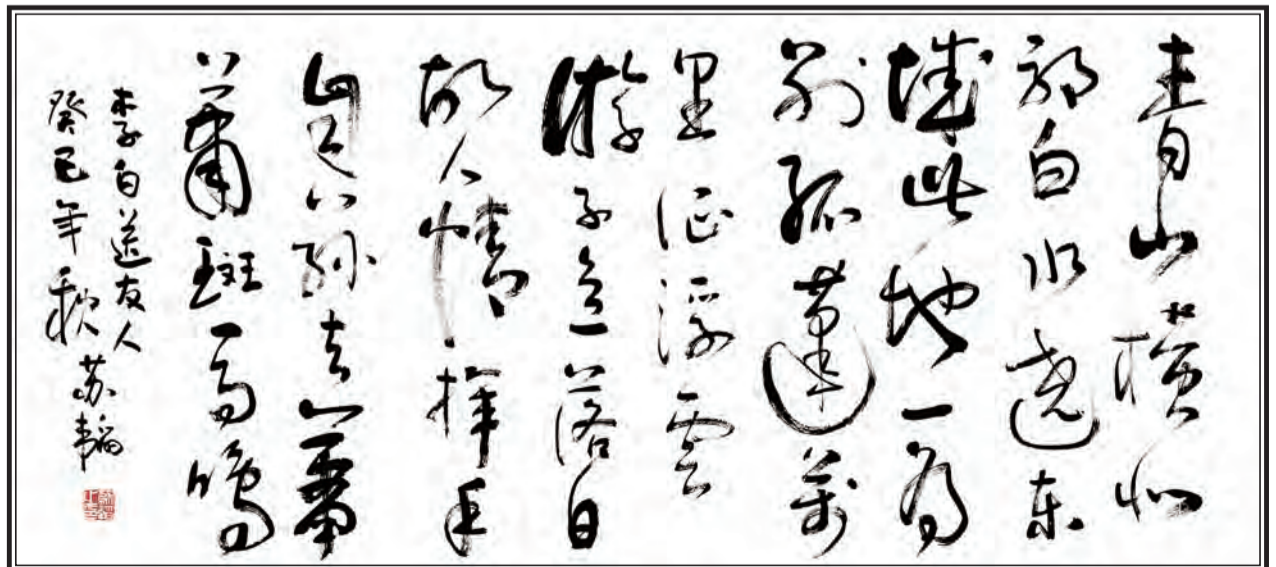 青山横北
郭白水遶东
城此地一为
别孤蓬萬
里征浮雲
游子意落日
故人情挥手
自兹去萧
萧班马鸣
李白送友人
癸巳年秋 苏韬